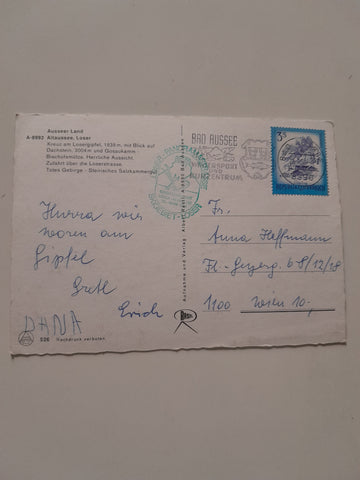 Ausseer Land
A-8992 Altaussee, Loser
Kreuz am Losergipfel, 1838 m, mit Blick auf
Dachstein, 3004 m und Gosaukamm -
Bischofsmütze. Herrliche Aussicht.
Zufahrt über die Loserstrasse.
Totes Gebirge - Steirisches Salzkammergut
Hurra wir
waren am
Gipfel
Gretl
Erich
DANA
526 Nachdruck verboten.
Aufnahme und Verlag:
BAD AUSSEE
WINTERSPORT
UND
KURZENTRUM
3 S
REPUBLIK ÖSTERREICH
Fr.
Anna Hoffmann
68/12/18
1100 Wien 10,-